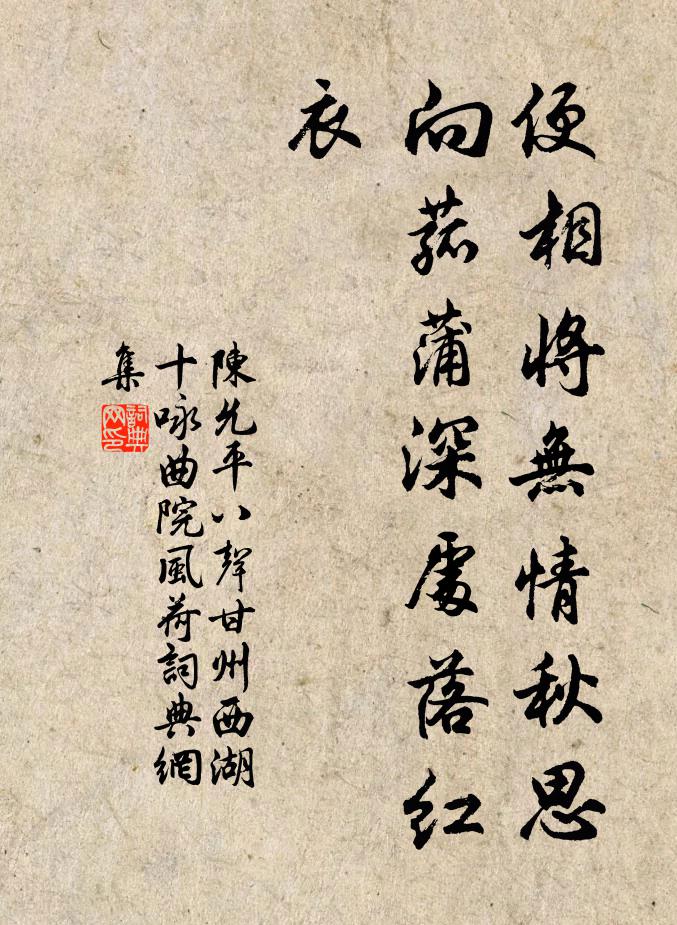 便相將無情秋思
向菰蒲深處落紅
衣
陳允平八聲甘州西湖
十咏曲院風荷詞典網
集
詞典
网印